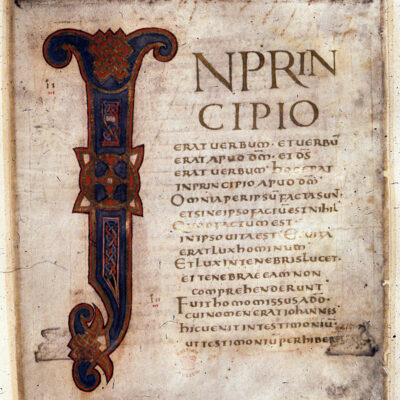 INPRIN
CIPIO
ERATUERBUM · ETUERBŪ
ERATAPUD D̄M · ET D̄S
ERATUERBUM · HOC ERAT
INPRINCIPIO APUD D̄M
OMNIA PER IPSŪ FACTA SUNT
ET SINE IPSO FACTŪ EST NIHIL
QUOD FACTUM EST ·
IN IPSO UITA EST · ET UITA
ERAT LUX HOMINUM
ET LUX IN TENEBRIS LUCET ·
ET TENEBRAE EAM NON
COMPREHENDERUNT
FUIT HOMO MISSUS A D̄O
CUI NOMEN ERAT IOHANNES
HIC UENIT IN TESTIMONIŪ
UT TESTIMONIŪ PERHIBER